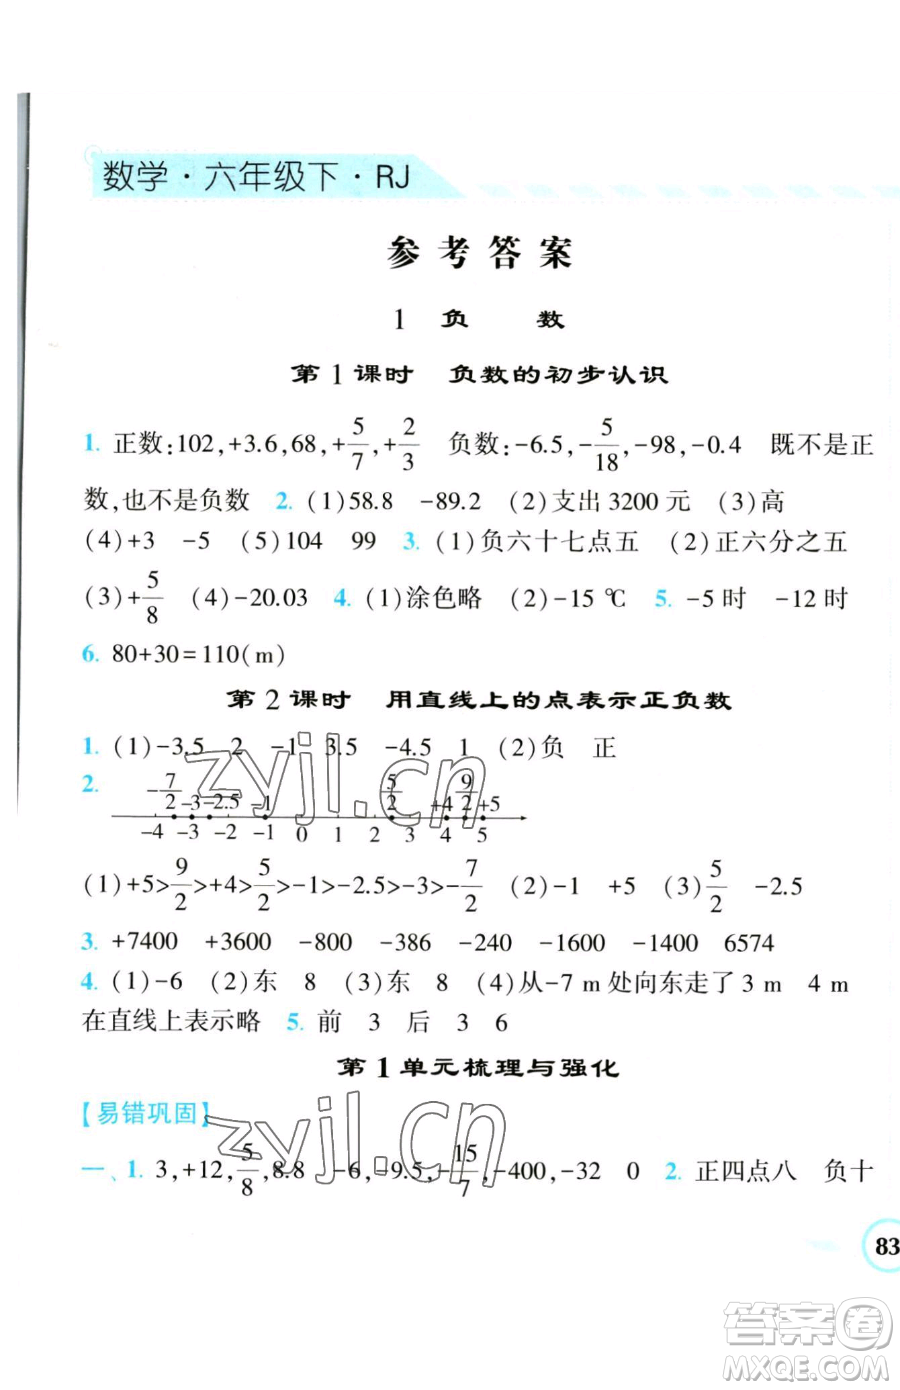 数学·六年级下·RJ
参考答案
1 负 数
第1课时 负数的初步认识
1. 正数:102,+3.6,68,+5/7,+2/3 负数:-6.5,-5/18,-98,-0.4 既不是正
数,也不是负数 2. (1)58.8 -89.2 (2)支出3200元 (3)高
(4)+3 -5 (5)104 99 3. (1)负六十七点五 (2)正六分之五
(3)+5/8 (4)-20.03 4. (1)涂色略 (2)-15 ℃ 5. -5时 -12时
6. 80+30=110(m)
第2课时 用直线上的点表示正负数
1. (1)-3.5 2 -1 3.5 -4.5 1 (2)负 正
2. -7/2 -3 -2.5 -1 5/2 +4 9/2 +5
-4 -3 -2 -1 0 1 2 3 4 5
(1)+5>9/2>+4>5/2>-1>-2.5>-3>-7/2 (2)-1 +5 (3)5/2 -2.5
3. +7400 +3600 -800 -386 -240 -1600 -1400 6574
4. (1)-6 (2)东 8 (3)东 8 (4)从-7 m处向东走了3 m 4 m
在直线上表示略 5. 前 3 后 3 6
第1单元梳理与强化
【易错巩固】
一、1. 3,+12,5/8,8.8 -6,-9.5,-15/7,-400,-32 0 2. 正四点八 负十
83
zyjl.cn
zyjl.cn
答案圈
MXQE.COM